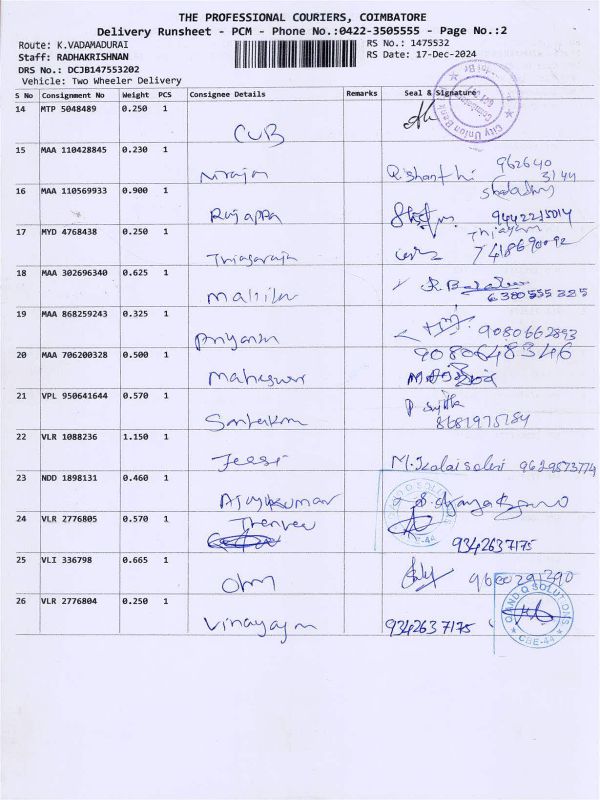 THE PROFESSIONAL COURIERS, COIMBATORE
Delivery Runsheet - PCM - Phone No.:0422-3505555 - Page No.:2
Route: K.VADAMADURAI
RS No.: 1475532
Staff: RADHAKRISHNAN
RS Date: 17-Dec-2024
DRS No.: DCJB147553202
Vehicle: Two Wheeler Delivery
S No Consignment No Weight PCS Consignee Details Remarks Seal & Signature
14 MTP 5048489 0.250 1
CUB
City Union Bank
15 MAA 110428845 0.230 1
Niraja 962640
3144
16 MAA 110569933 0.900 1
Rajappa 9442215014
17 MYD 4768438 0.250 1
Thiagaraja 7418690092
18 MAA 302696340 0.625 1
Mahila 6380555325
19 MAA 868259243 0.325 1
Priyanka 9080662893
20 MAA 706200328 0.500 1
9080648346
Maheswari
21 VPL 950641644 0.570 1
8681975184
22 VLR 1088236 1.150 1
Jeesi M.Kalaiselvi 9629573774
23 NDD 1898131 0.460 1
Ajaykumar
24 VLR 2776805 0.570 1
9342637175
25 VLI 336798 0.665 1
Ohm 9600291390
26 VLR 2776804 0.250 1
Vinayagm 9342637175
Q AND Q SOLUTIONS
CBE-44